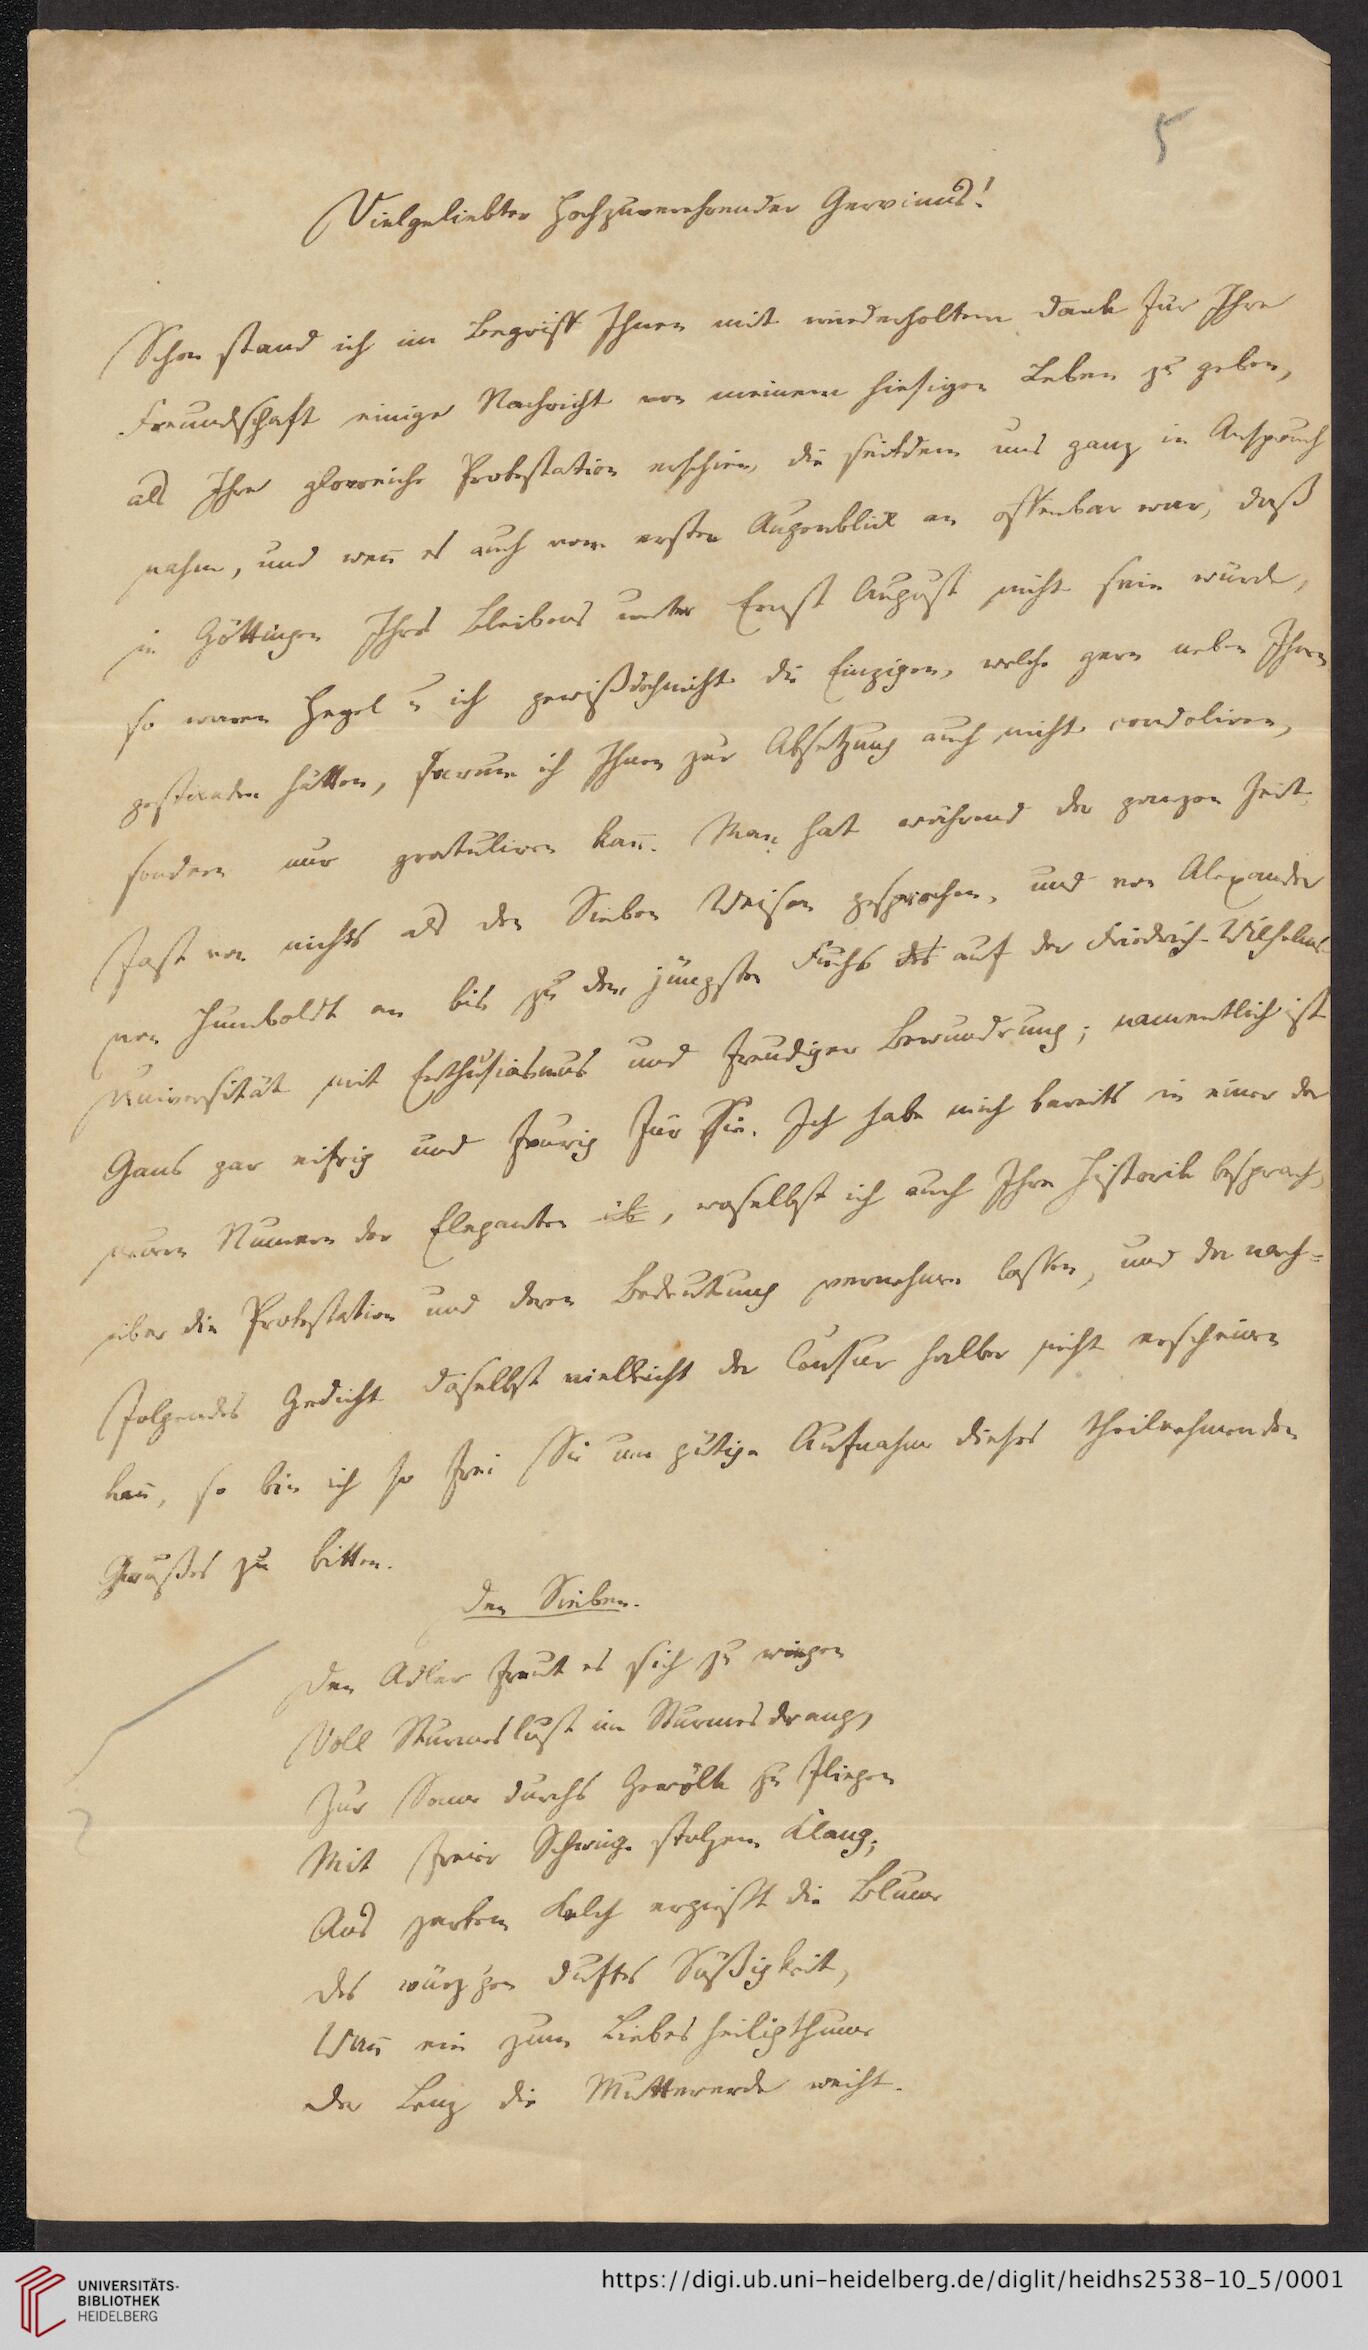 5
Vielgeliebter hochzuverehrender Gervinus!
Schon stand ich im Begriff Ihnen mit wiederholtem Dank für Ihre
Freundschaft einige Nachricht von meinem hiesigen Leben zu geben,
als Ihre glorreiche Protestation erschien, die seitdem uns ganz in Anspruch
nahm, und wen̄ es auch vom ersten Augenblick an offenbar war, daß
in Göttingen Ihres Bleibens unter Ernst August nicht sein würde,
so waren Hegel u ich gewiß doch nicht die Einzigen, welche gern neben Ihnen
gestanden hätten, darum ich Ihnen zur Absetzung auch nicht condoliren,
sondern nur gratuliren kan̄. Man hat während der ganzen Zeit
fast von nichts als den Sieben Weisen gesprochen, und von Alexander
von Humboldt an bis zu dem jüngsten Fuchs des auf der Friedrich-Wilhelms-
Universität mit Enthusiasmus und freudiger Bewundrung; namentlich ist
Gans gar eifrig und feurig für Sie. Ich habe mich bereits in einer der
neuen Numern der Eleganten üb, woselbst ich auch Ihre Historik besprach,
über die Protestation und deren Bedeutung vernehmen lassen, und da nach=
folgendes Gedicht daselbst vielleicht der Censur halber nicht erscheinen
kan̄, so bin ich so frei Sie um gütige Aufnahme dieses theilnehmenden
Grußes zu bitten.
Den Sieben.
Den Adler freut es sich zu wiegen
Voll Sturmeslust im Sturmesdrang,
Zur Sonne durchs Gewölk zu fliegen
Mit freier Schwinge stolzem Klang;
Aus zartem Kelch ergießt die Blume
Des würz'gen Duftes Süßigkeit,
Wan̄ ein zum Liebesheiligthume
Der Lenz die Muttererde weiht.
UNIVERSITÄTS-
BIBLIOTHEK
HEIDELBERG
https://digi.ub.uni-heidelberg.de/diglit/heidhs2538-10_5/0001